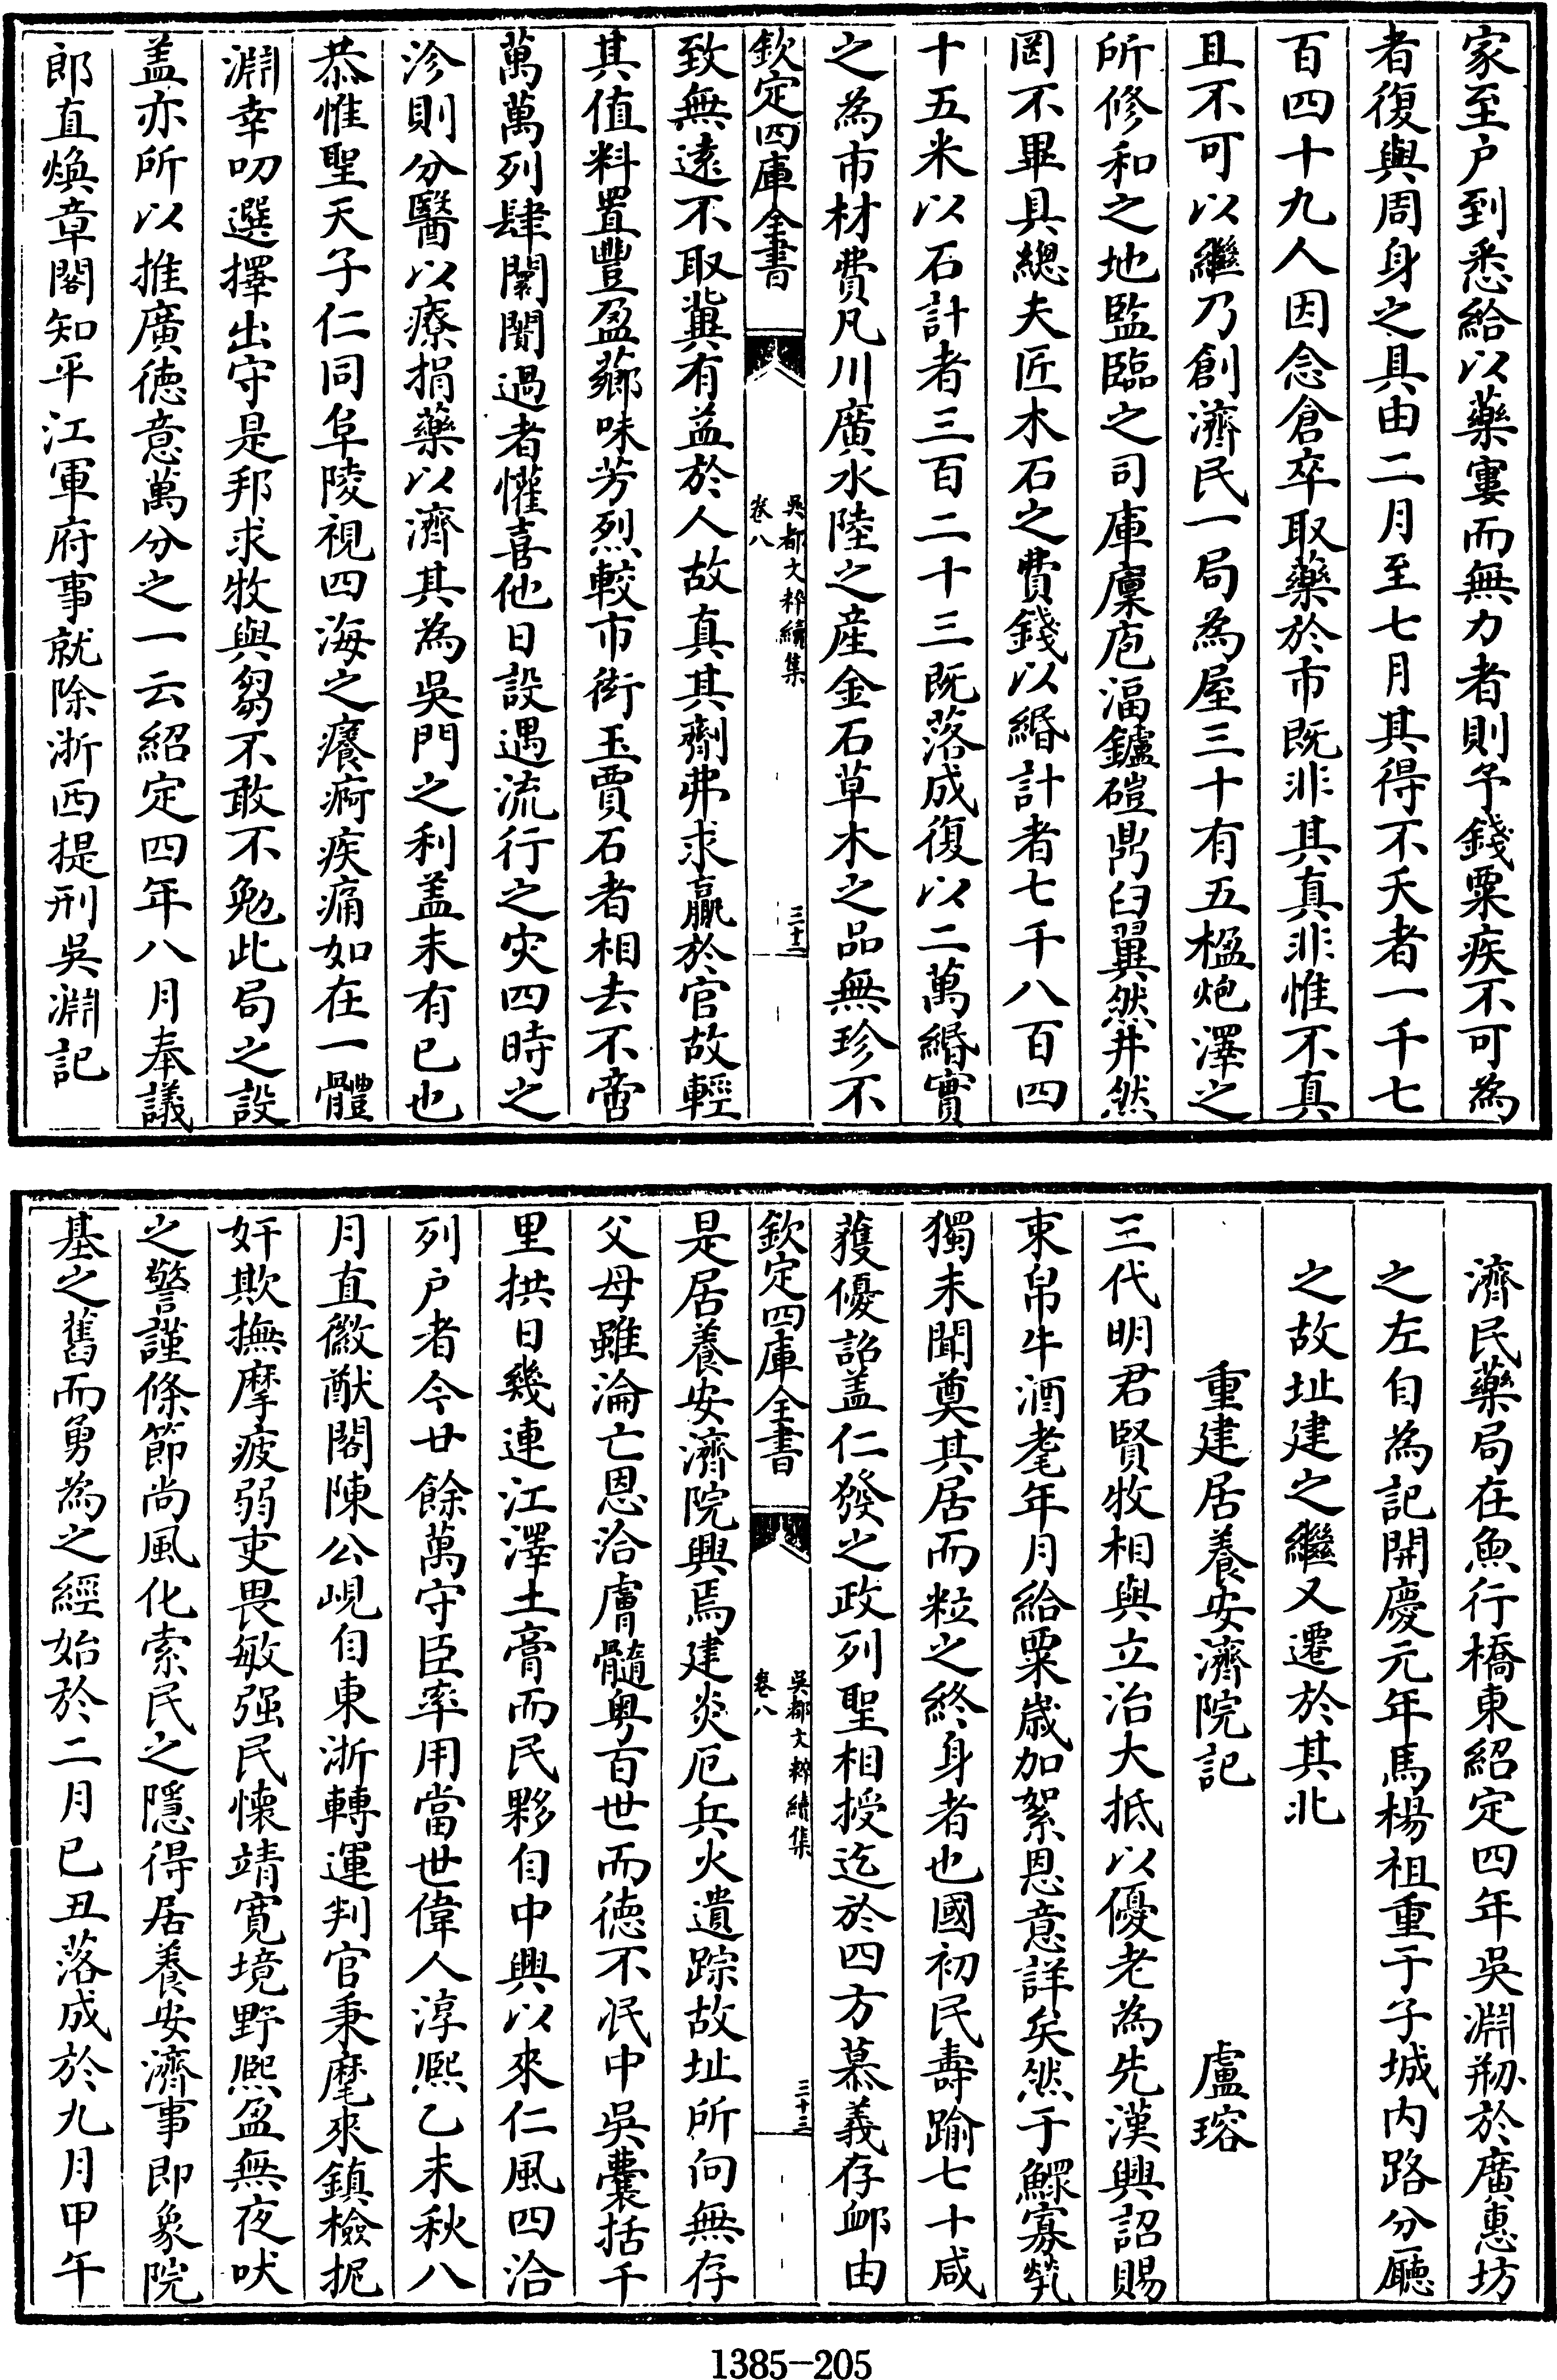 家至户到悉給以藥窶而無力者則予錢粟疾不可為
者復與周身之具由二月至七月其得不夭者一千七
百四十九人因念倉卒取藥於市既非其真非惟不真
且不可以繼乃創濟民一局為屋三十有五楹炮澤之
所修和之地監臨之司庫廩庖湢鑪磑鼎臼翼然井然
罔不畢具總夫匠木石之費錢以緡計者七千八百四
十五米以石計者三百二十三既落成復以二萬緡實
之為市材費凡川廣水陸之産金石草木之品無珍不
欽定四庫全書
吳都文粹續集
卷八
三十二
致無遠不取冀有益於人故真其劑弗求贏於官故輕
其值料置豐盈薌味芳烈較市街玉賈石者相去不啻
萬萬列肆闤闠過者懽喜他日設遇流行之灾四時之
沴則分醫以療捐藥以濟其為吳門之利盖未有已也
恭惟聖天子仁同阜陵視四海之癢疴疾痛如在一體
淵幸叨選擇出守是邦求牧與芻不敢不勉此局之設
盖亦所以推廣徳意萬分之一云紹定四年八月奉議
郎直煥章閣知平江軍府事就除浙西提刑吳淵記
濟民藥局在魚行橋東紹定四年吳淵剏於廣惠坊
之左自為記開慶元年馬楊祖重于子城内路分廳
之故址建之繼又遷於其北
重建居養安濟院記
盧瑢
三代明君賢牧相與立治大抵以優老為先漢興詔賜
束帛牛酒耄年月給粟歳加絮恩意詳矣然于鰥寡煢
獨未聞奠其居而粒之終身者也國初民壽踰七十咸
䕶優詔盖仁發之政列聖相授迄於四方慕義存䘏由
欽定四庫全書
吳都文粹續集
卷八
三十三
是居養安濟院興焉建炎厄兵火遺踪故址所向無存
父母雖淪亡恩洽膚髓粤百世而徳不冺中吳囊括千
里拱日幾連江澤土膏而民夥自中興以來仁風四洽
列户者今廿餘萬守臣率用當世偉人淳熈乙未秋八
月直徽猷閣陳公峴自東浙轉運判官秉麾來鎮檢扼
奸欺撫摩疲弱吏畏敏强民懐靖寛境野熈盈無夜吠
之警謹條節尚風化索民之隱得居養安濟事即象院
基之舊而勇為之經始於二月已丑落成於九月甲午
1385-205